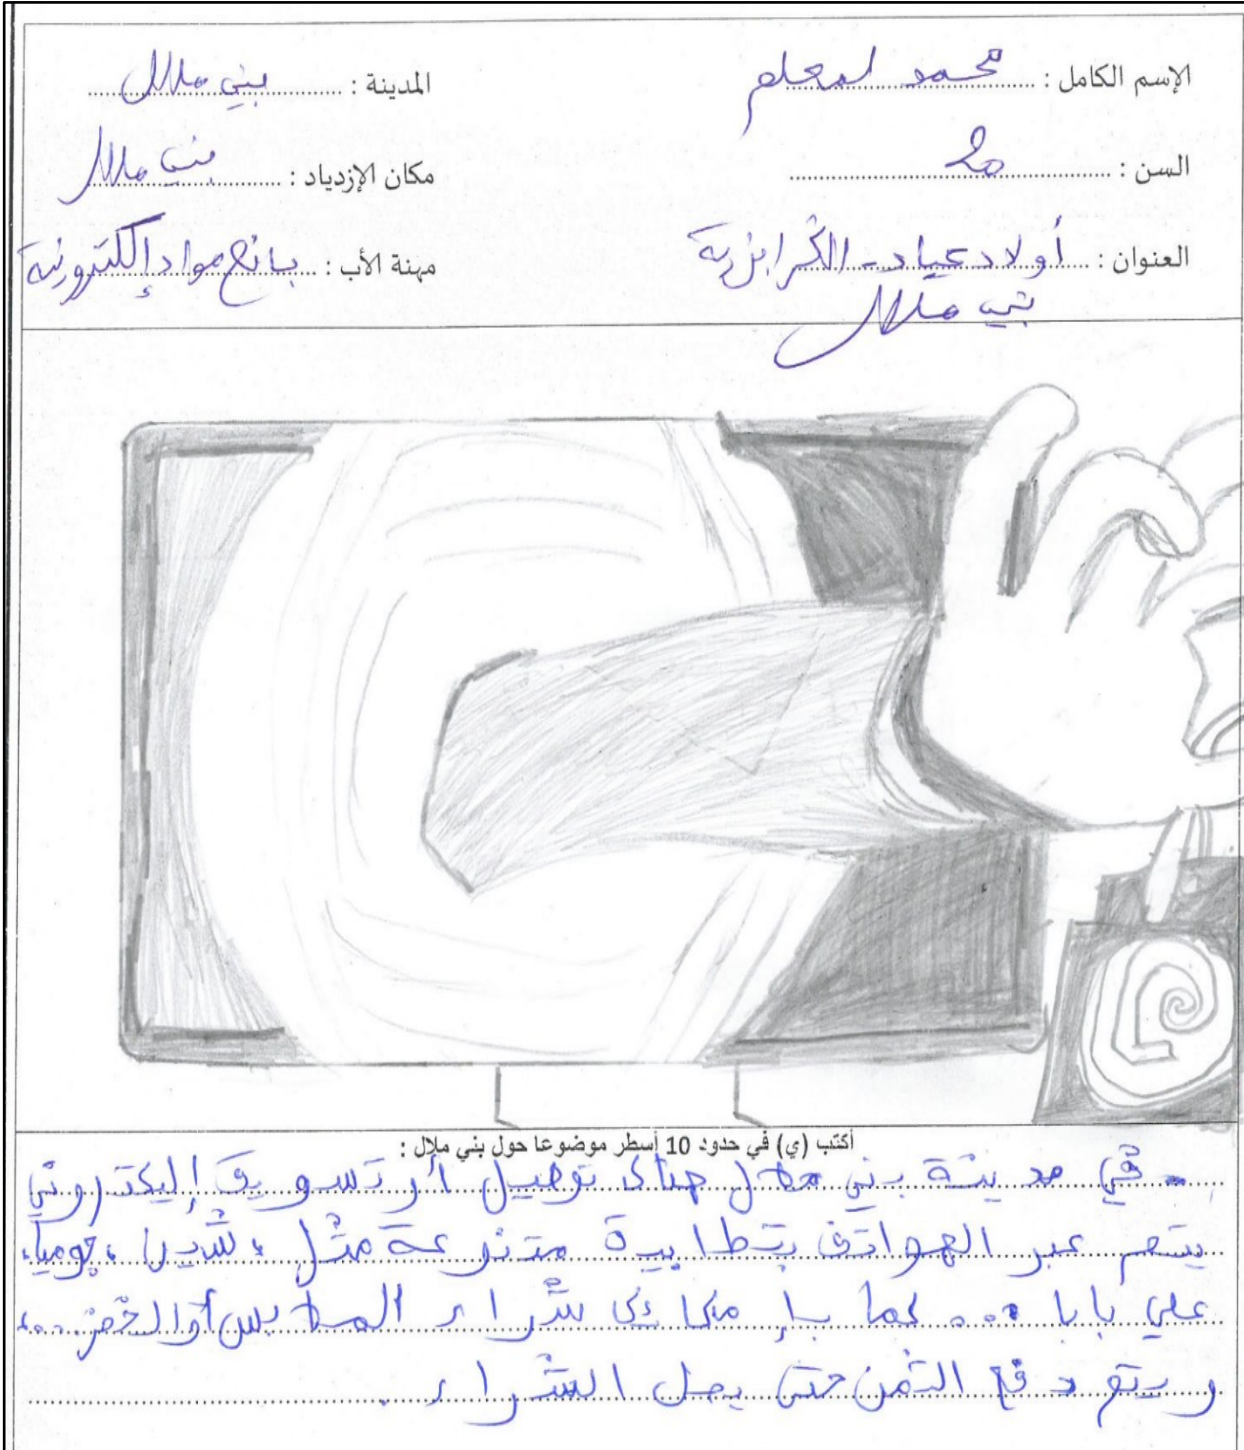 الإسم الكامل : محمد لمعلم
المدينة : بني ملال
السن : 20
مكان الإزدياد : بني ملال
العنوان : أولاد عياد - الكرابزية
بني ملال
مهنة الأب : بائع مواد إلكترونية
أكتب (ي) في حدود 10 أسطر موضوعا حول بني ملال :
- في مدينة بني ملال هناك توصيل أو تسويق إليكتروني
يتم عبر الهواتف بتطابيق متنوعة مثل ، شين ، جوميا،
علي بابا ... كما بإمكانك شراء الملابس أو الخضر...،
ويتم دفع الثمن حتى يصل الشراء.